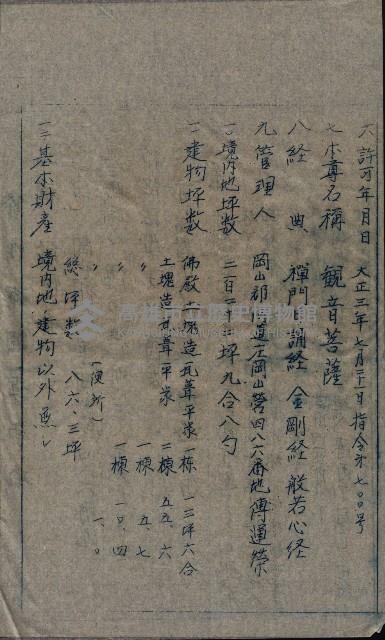 六 許可年月日 大正三年七月三十一日指令第七〇〇号
七 本尊名稱 観音菩薩
八 経典 禪門日誦経 金剛経 般若心経
九 管理人 岡山郡 道庄岡山営四八六番地 傳運榮
一〇 境内地坪数 二百二十坪九合八勺
一一 建物坪数 佛殿土塊造瓦葺平家 一棟 一三坪六合
土塊造瓦葺平家 二棟 五五、六
〃 一棟 五、七
〃 一棟 一〇、四
(便所) 一、〇
総坪数 八六、三坪
一二 基本財産 境内地、建物以外無シ
高雄市立歴史博物館